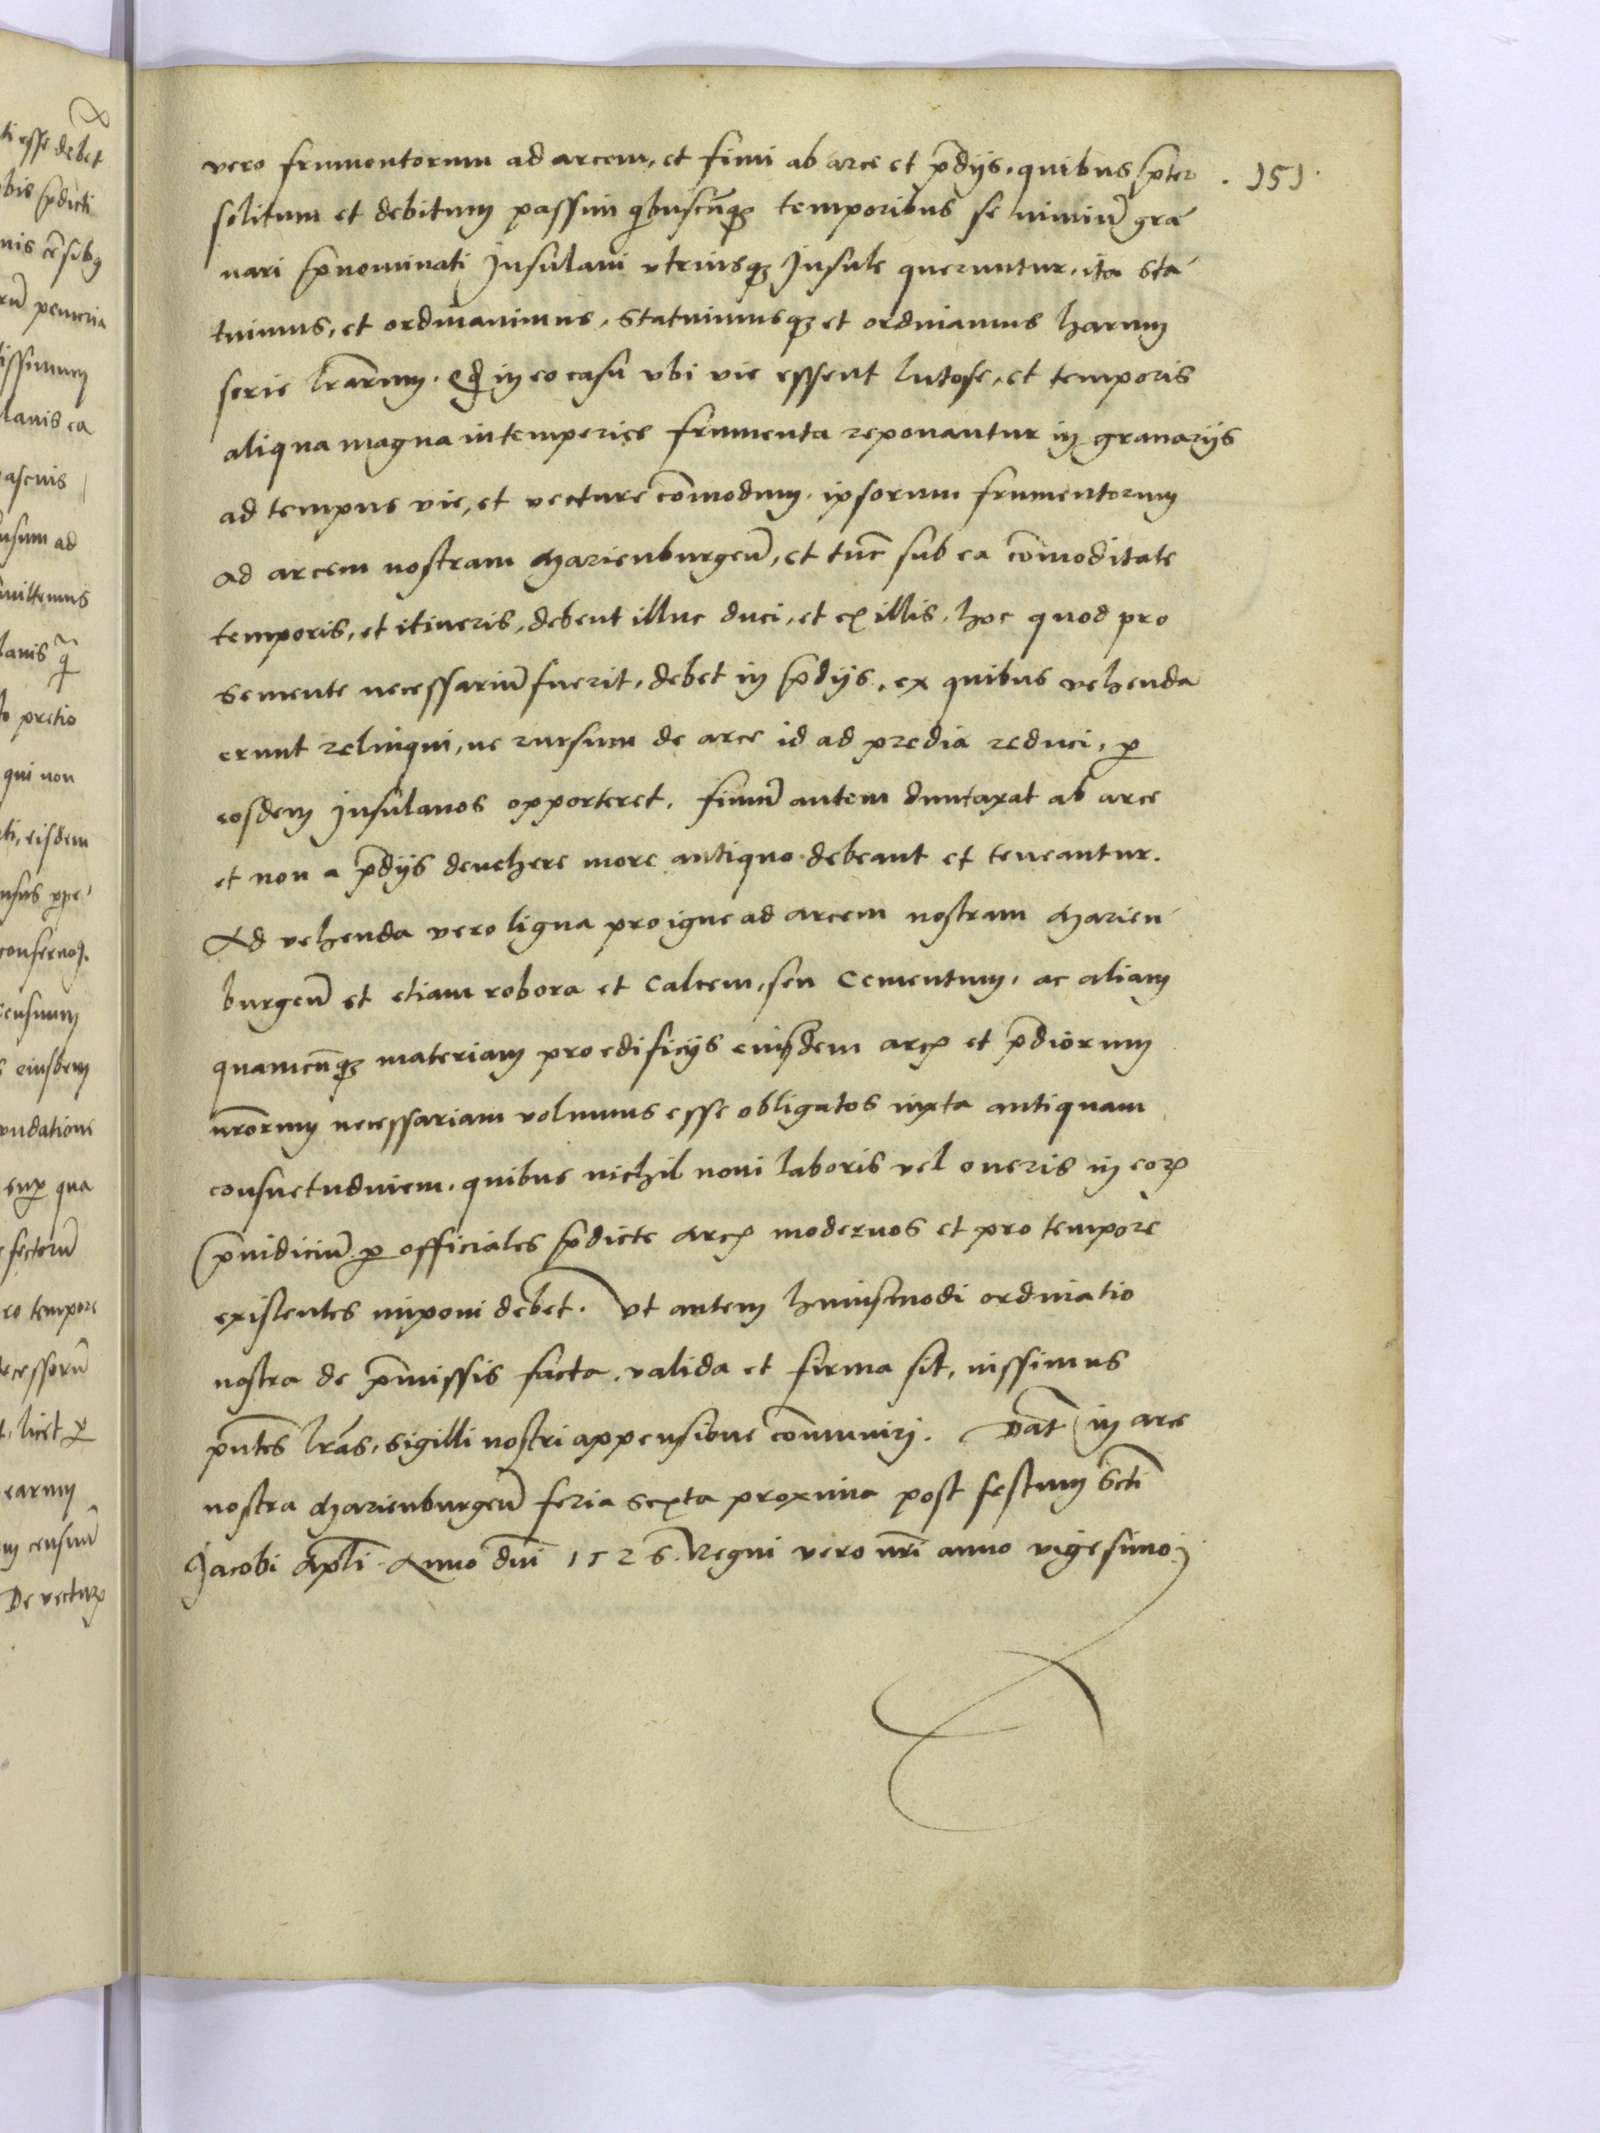 vero frumentorum ad arcem, et fimi ab arce et p̄dijs, quibus p̄ter . 151 .
solitum et debitum passim qibuscūq; temporibus se nimiū gra-
uari p̄nominati Insulani vtriusq; Insule queruntur, ita sta-
tuimus, et ordinauimus, statuimusq; et ordinamus harum
serie lrārum. Qd in eo casu vbi vie essent lutose, et temporis
aliqua magna intemperies frumenta reponantur in granarijs
ad tempus vie, et vecture cōmodum, ipsorum frumentorum
ad arcem nostram Marienburgeñ, et tūc sub ea cōmoditate
temporis, et itineris, debent illuc duci, et ex illis, hoc quod pro
semente necessariū fuerit, debet in p̄dijs, ex quibus vehenda
erunt relinqui, ne rursum de arce id ad predia reduci, ꝑ
eosdem Insulanos opporteret, fimū autem duntaxat ab arce
et non a p̄dijs deuehere more antiquo debeant et teneantur.
Ad vehenda vero ligna pro igne ad arcem nostram Marien-
burgeñ et etiam robora et Calcem, seu Cementum, ac aliam
quamcūq; materiam pro edificijs eiusdem arcꝭ et p̄diorum
nrōrum necessariam volumus esse obligatos iuxta antiquam
consuetudinem, quibus nichil noui laboris vel oneris in eorꝭ
p̄iudiciū ꝑ officiales p̄dicte arcꝭ modernos et pro tempore
existentes imponi debet. Vt autem huiusmodi ordinatio
nostra de p̄missis facta, valida et firma sit, iussimus
pn̄tes lrās, sigilli nostri appensione cōmuniri. Dat̄ in arce
nostra Marienburgeñ feria sexta proxima post festum Scti
Jacobi Apl̄i Anno dn̄i 1526. Regni vero nrī anno vigesimo